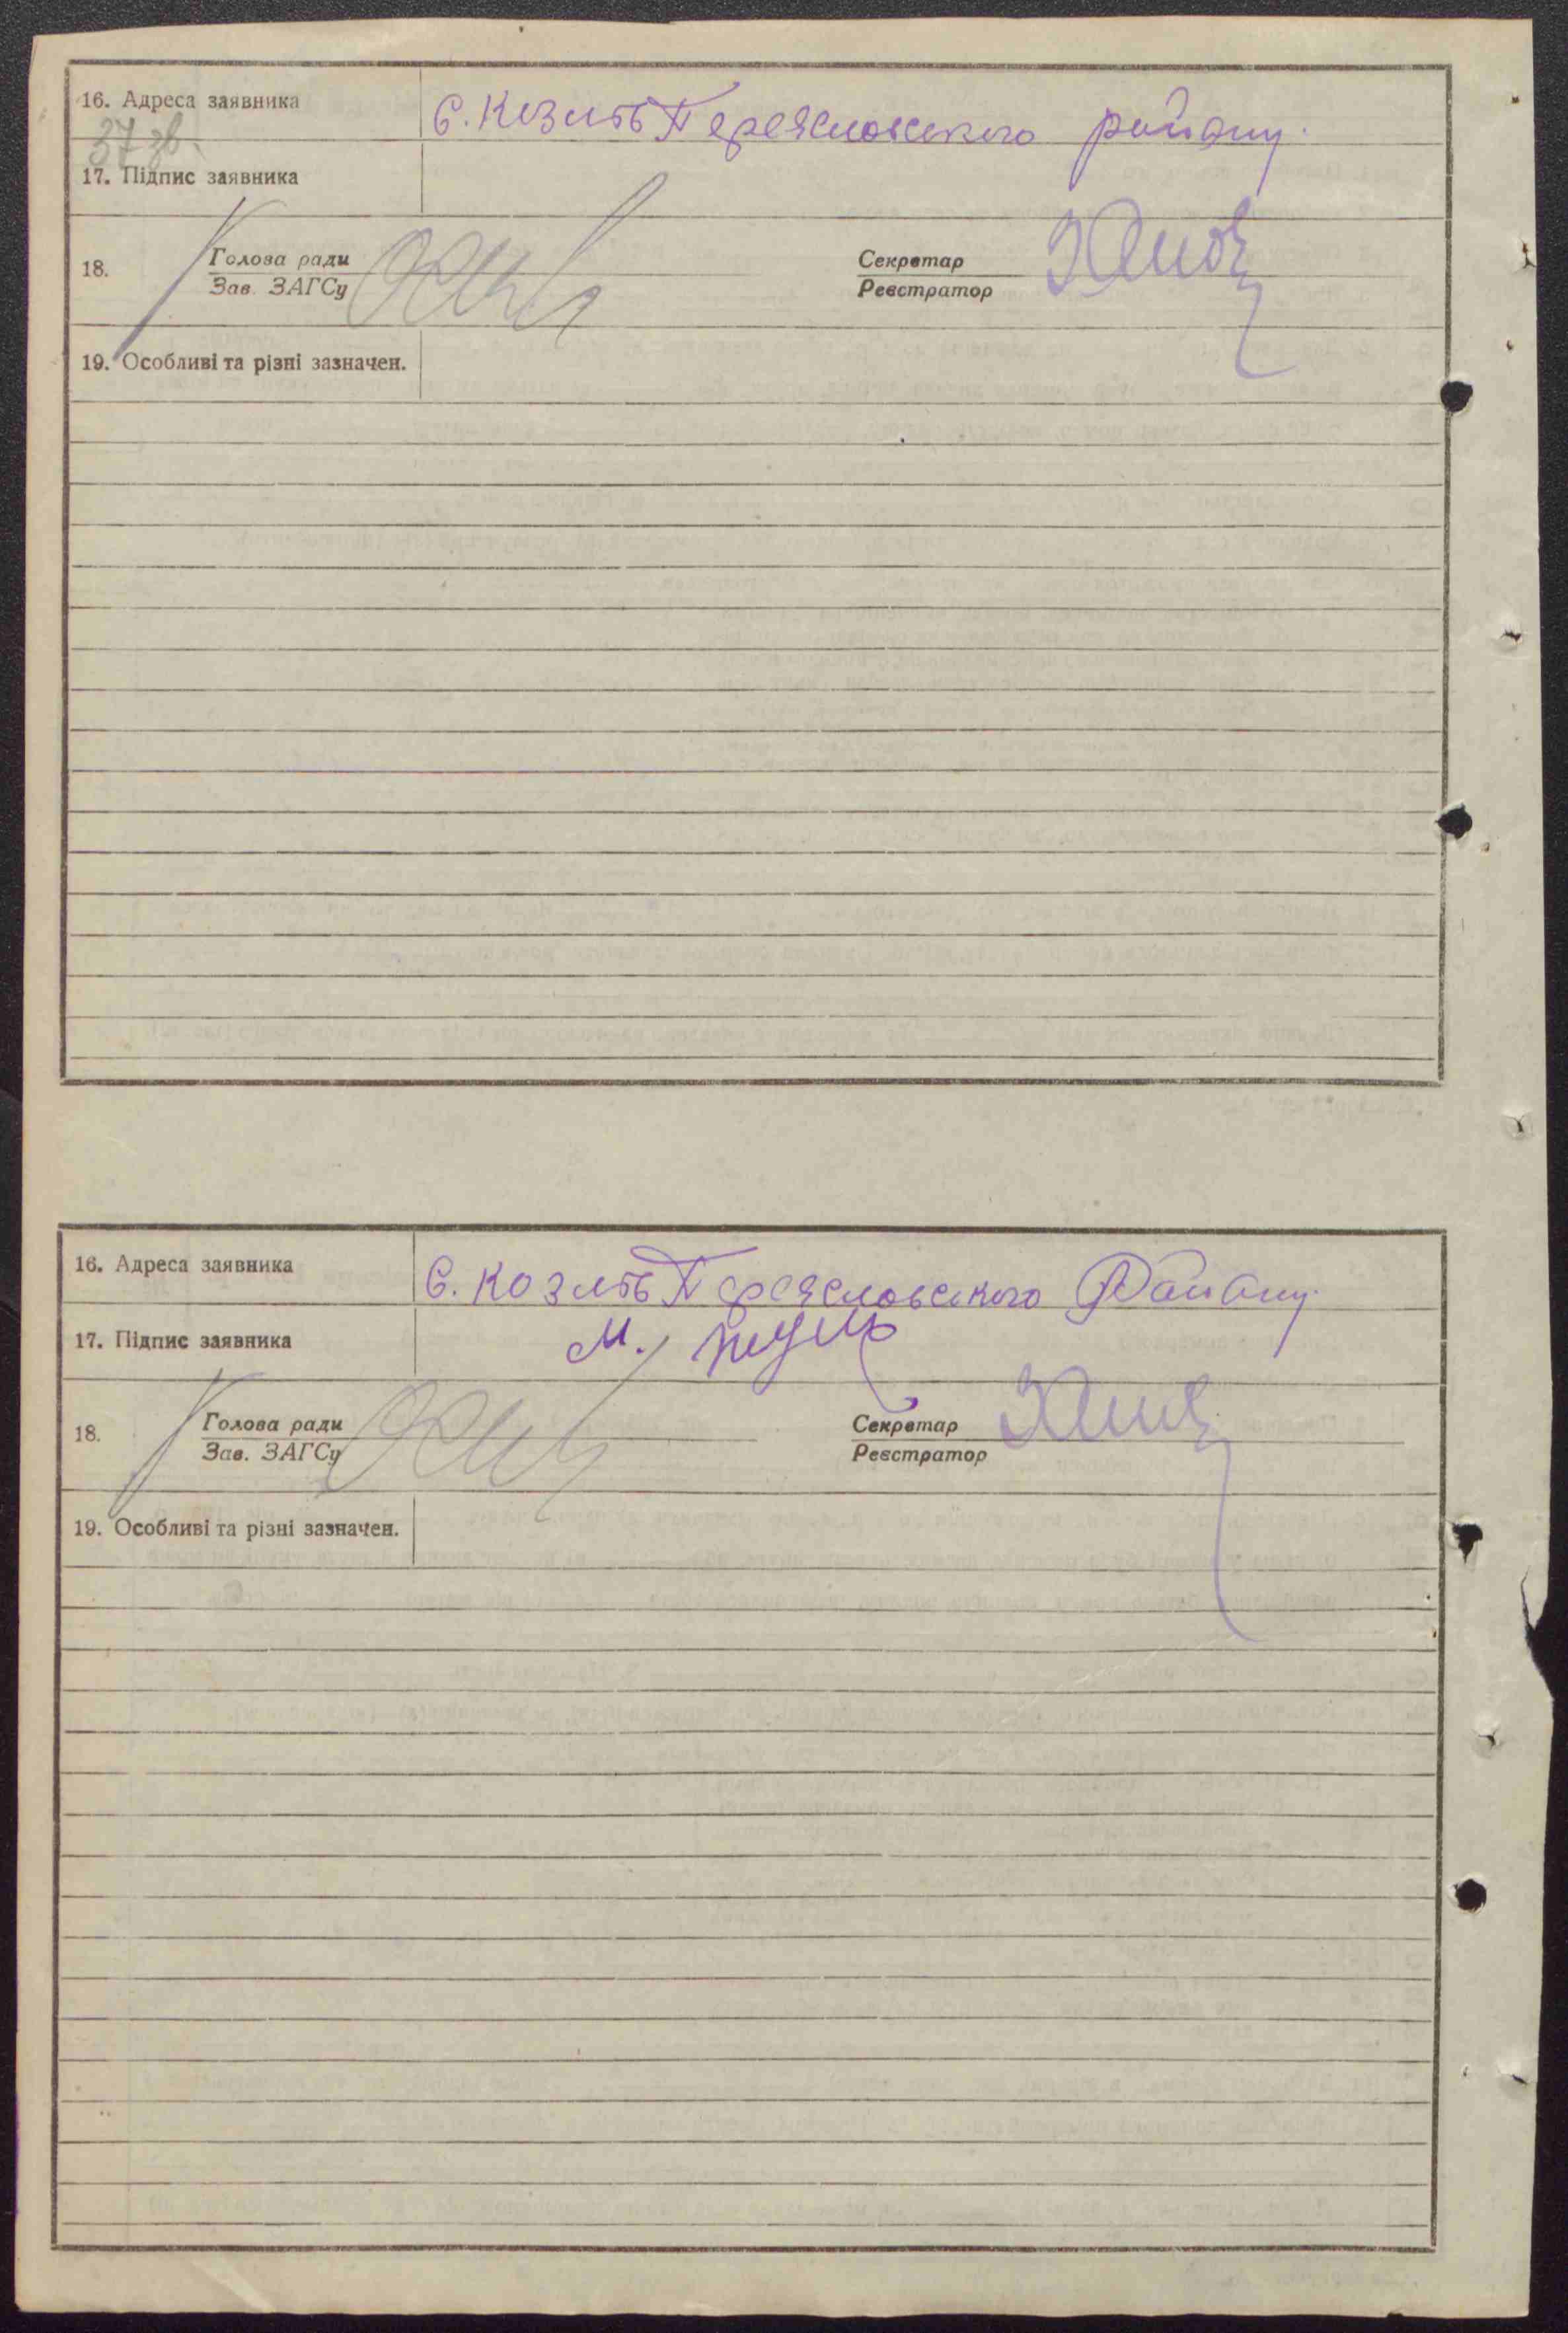 16. Адреса заявника С. Козлів Переясловського району.
37 зв.
17. Підпис заявника
18. Голова ради Секретар
Зав. ЗАГСу Реєстратор
19. Особливі та різні зазначен.
16. Адреса заявника С. Козлів Переясловського Району.
17. Підпис заявника М.
18. Голова ради Секретар
Зав. ЗАГСу Реєстратор
19. Особливі та різні зазначен.